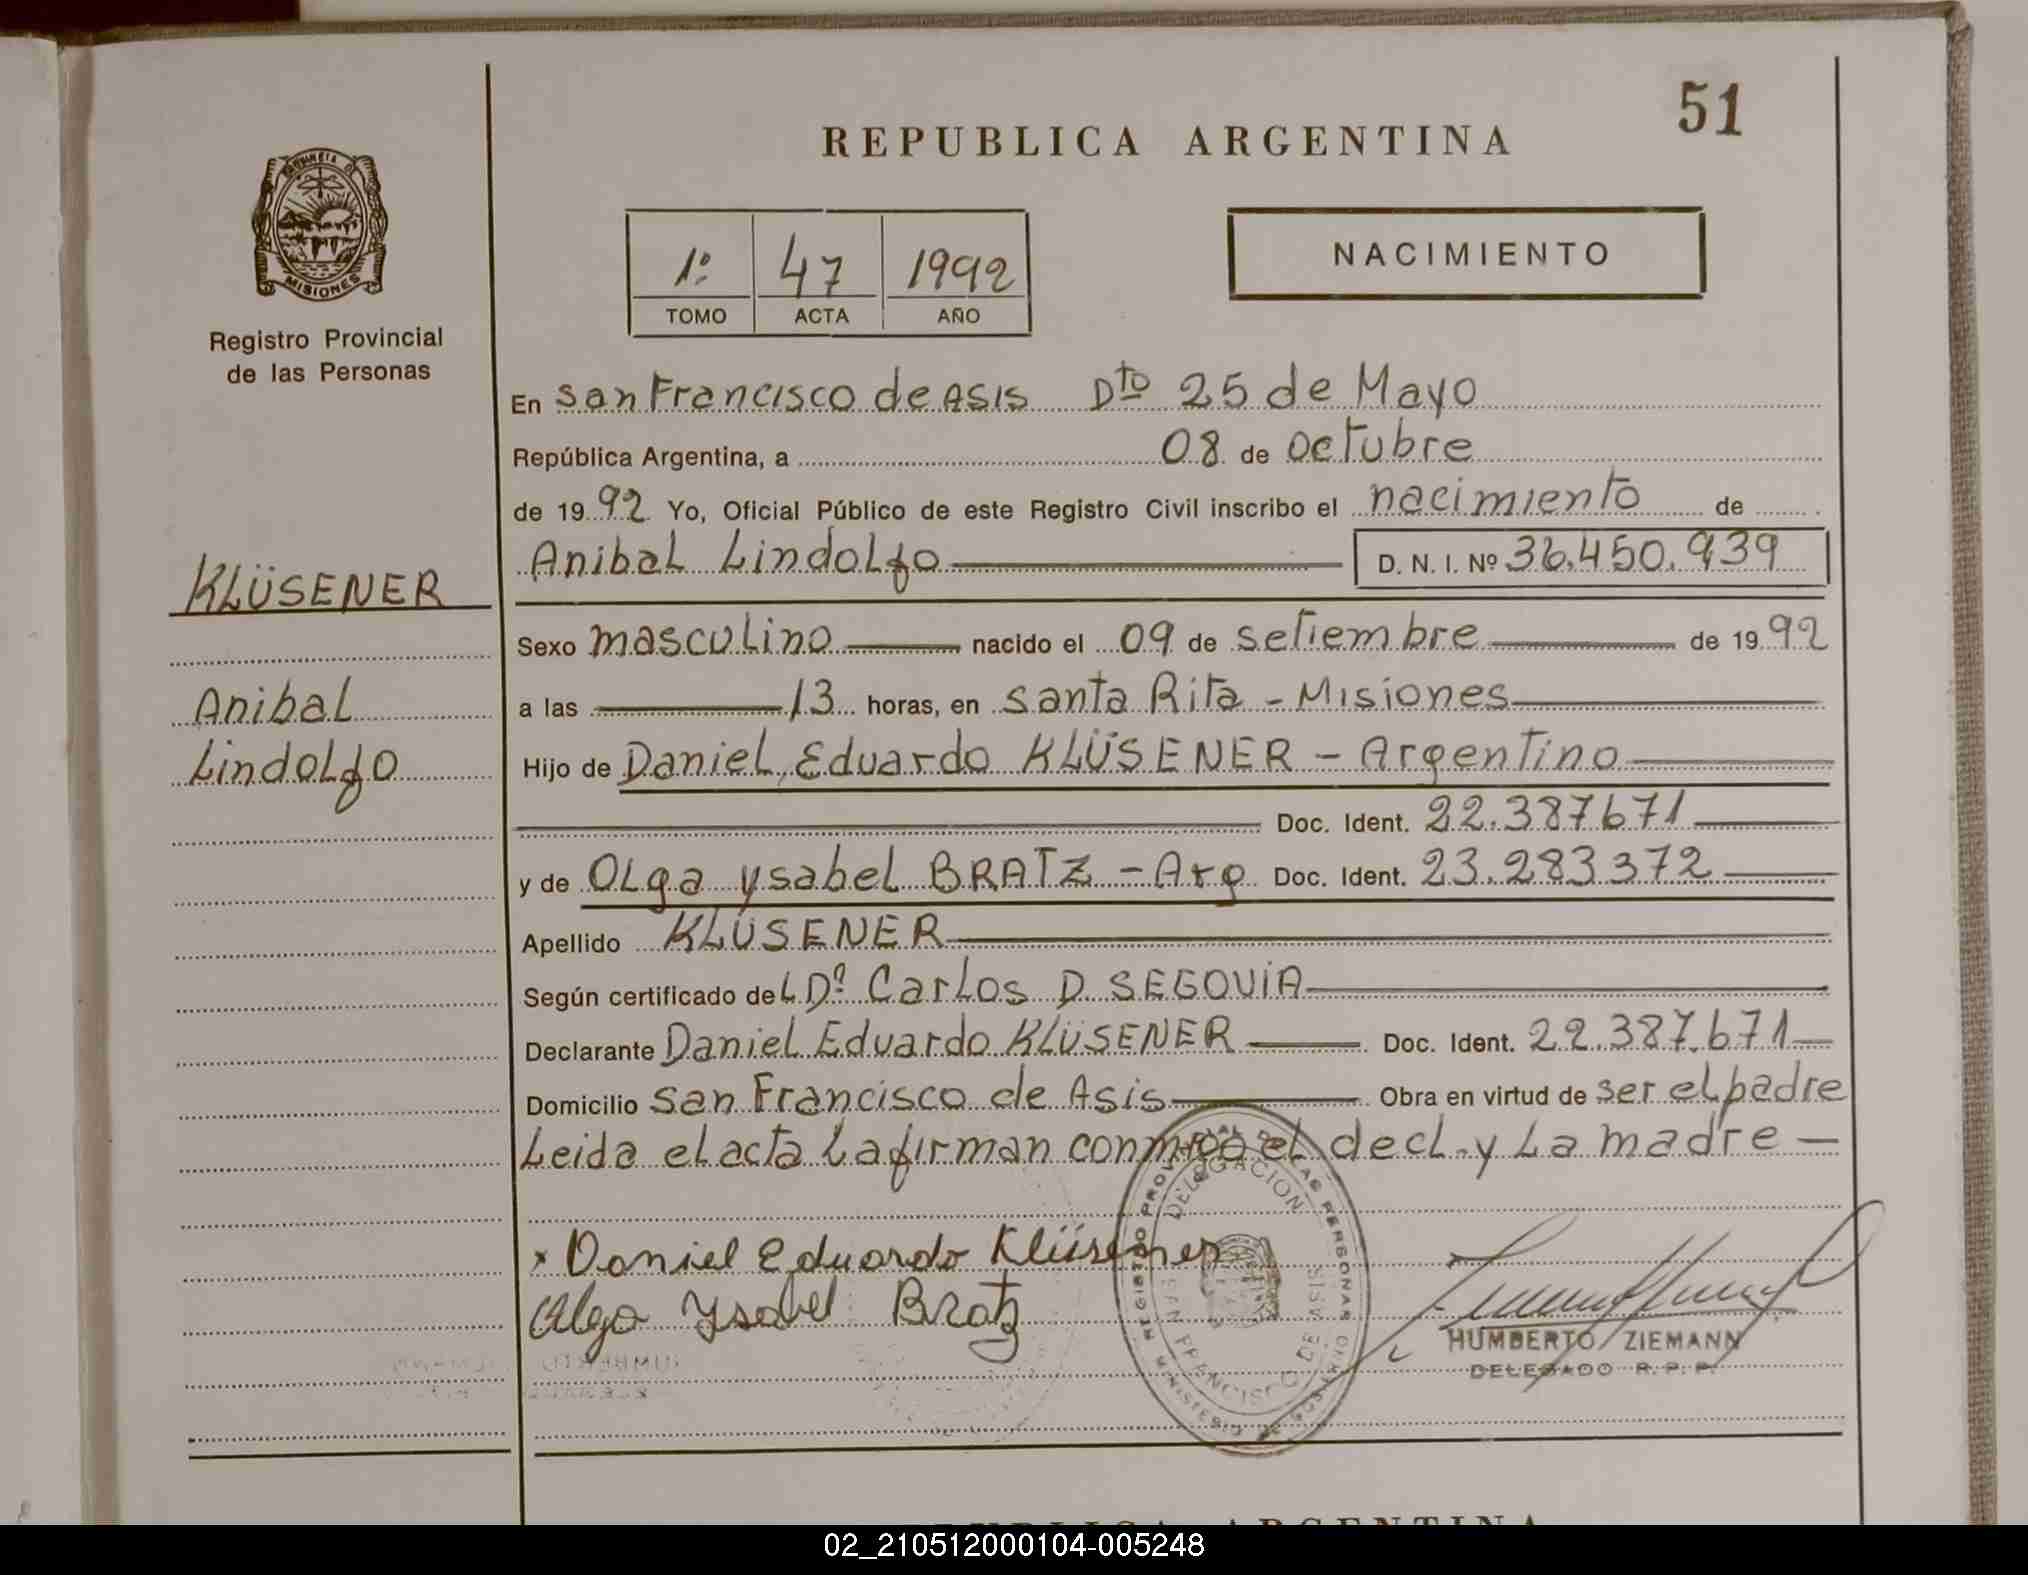 51
REPUBLICA ARGENTINA
PROVINCIA DE
MISIONES
Registro Provincial
de las Personas
1º 47 1992
TOMO ACTA AÑO
NACIMIENTO
En San Francisco de Asis Dto 25 de Mayo
República Argentina, a 08 de octubre
de 1992 Yo, Oficial Público de este Registro Civil inscribo el nacimiento de
Anibal Lindolfo D. N. I. Nº 36.450.939
KLÜSENER
Sexo masculino nacido el 09 de setiembre de 1992
Anibal
a las 13 horas, en Santa Rita - Misiones
Lindolfo
Hijo de Daniel Eduardo KLÜSENER - Argentino
Doc. Ident. 22.387671
y de Olga Ysabel BRATZ - Arg Doc. Ident. 23.283372
Apellido KLÜSENER
Según certificado del Dº Carlos D SEGOVIA
Declarante Daniel Eduardo KLÜSENER Doc. Ident. 22.387.671
Domicilio San Francisco de Asis Obra en virtud de ser el padre
Leida el acta la firman conmigo el decl. y la madre -
REGISTRO PROVINCIAL DE LAS PERSONAS
DELEGACION
SAN FRANCISCO DE ASIS
x Daniel Eduardo Klüsener
Olga Ysabel Bratz
HUMBERTO ZIEMANN
DELEGADO R. P. P.
REPUBLICA ARGENTINA
02_210512000104-005248